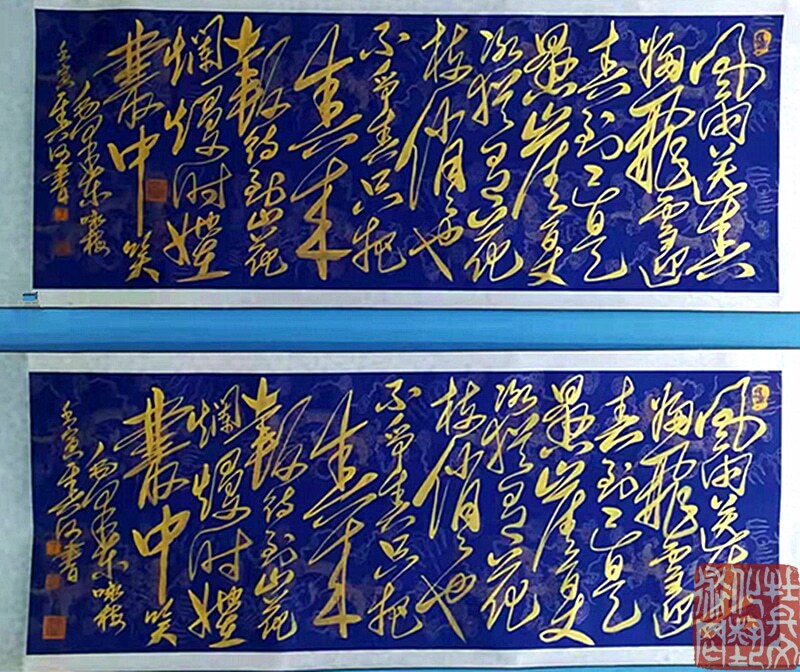 風雨送春
歸飛雪迎
春到已是
懸崖百丈
冰猶有花
枝俏俏也
不爭春只把
春来
報待到山花
爛漫时她在
叢中笑
毛澤東詠梅
壬寅年書
風雨送春
歸飛雪迎
春到已是
懸崖百丈
冰猶有花
枝俏俏也
不爭春只把
春来
報待到山花
爛漫时她在
叢中笑
毛澤東詠梅
壬寅年書